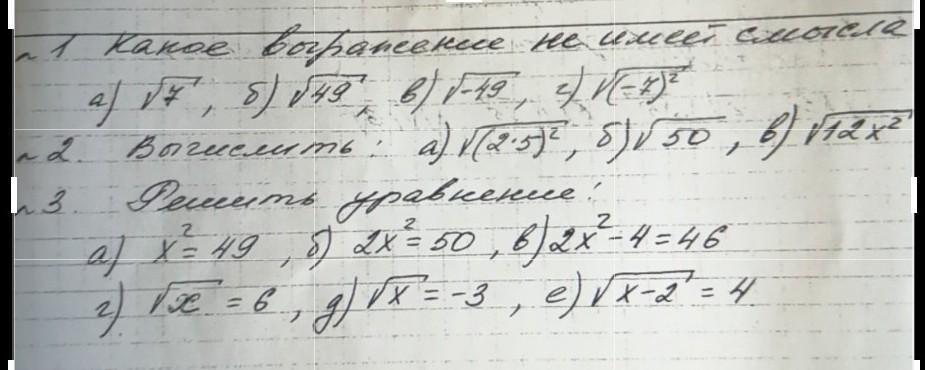 №1 Какое выражение не имеет смысла
а) √7, б) √49, в) √-49, г) √(-7)²
№2. Вычислить: а) √(2·5)², б) √50, в) √12x²
№3. Решить уравнение:
а) x² = 49, б) 2x² = 50, в) 2x² - 4 = 46
г) √x = 6, д) √x = -3, е) √x-2 = 4